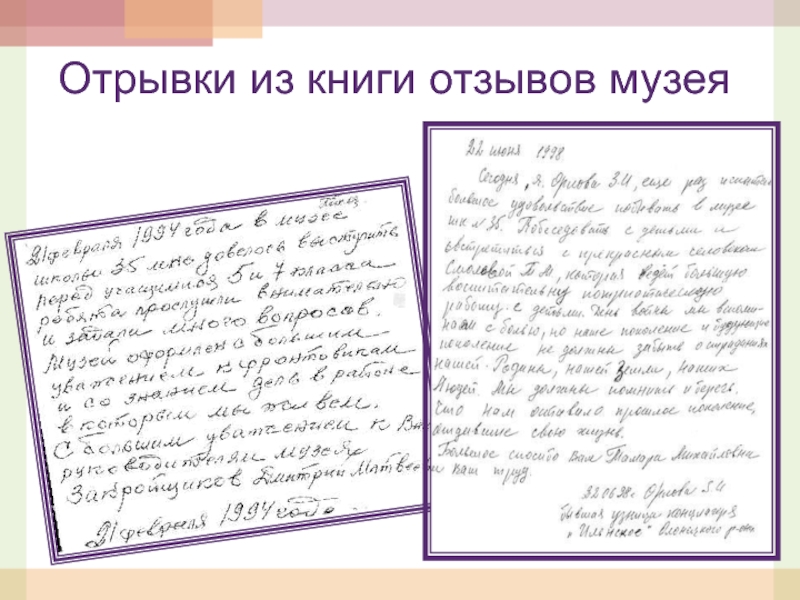 Отрывки из книги отзывов музея
21 февраля 1994 года в музее
школы 35 мне довелось выступить
перед учащимися 5 и 7 класса
ребята прослушали внимательно
и задали много вопросов.
Музей оформлен с большим
уважением к фронтовикам
и со знанием дела в районе
в котором мы живем.
С большим уважением к
руководителям музея
Закройщиков Дмитрий Матвееви
21 февраля 1994 года
22 июня 1998
Сегодня, я. Орлова З.И, еще раз испытала
большое удовольствие побывать в музее
шк № 35. Побеседовать с детьми и
встретиться с прекрасным человеком
Т М, которая ведет большую
воспитательну патриотическую
работу с детьми. День войны мы вспоми-
наем с болью, но наше поколение и будующее
поколение не должны забыть о страданиях
нашей Родины, нашей Земли, наших
Людей. Мы должны помнить и беречь.
Что нам оставило прошлое поколение,
отдавшие свою жизнь.
Большое спасибо Вам Тамара Михайловна
за Ваш труд.
22.06.98 г Орлова З.И
бывшая узница концлагеря
"Ильинское" Олонецкого р-она